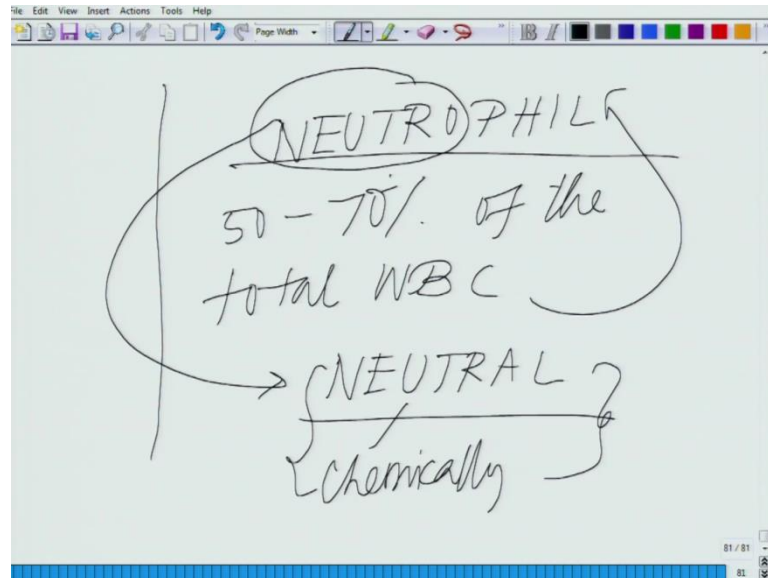 File Edit View Insert Actions Tools Help
Page Width
B I
NEUTROPHIL
50-70% of the
total WBC
NEUTRAL
Chemically
81/81
81